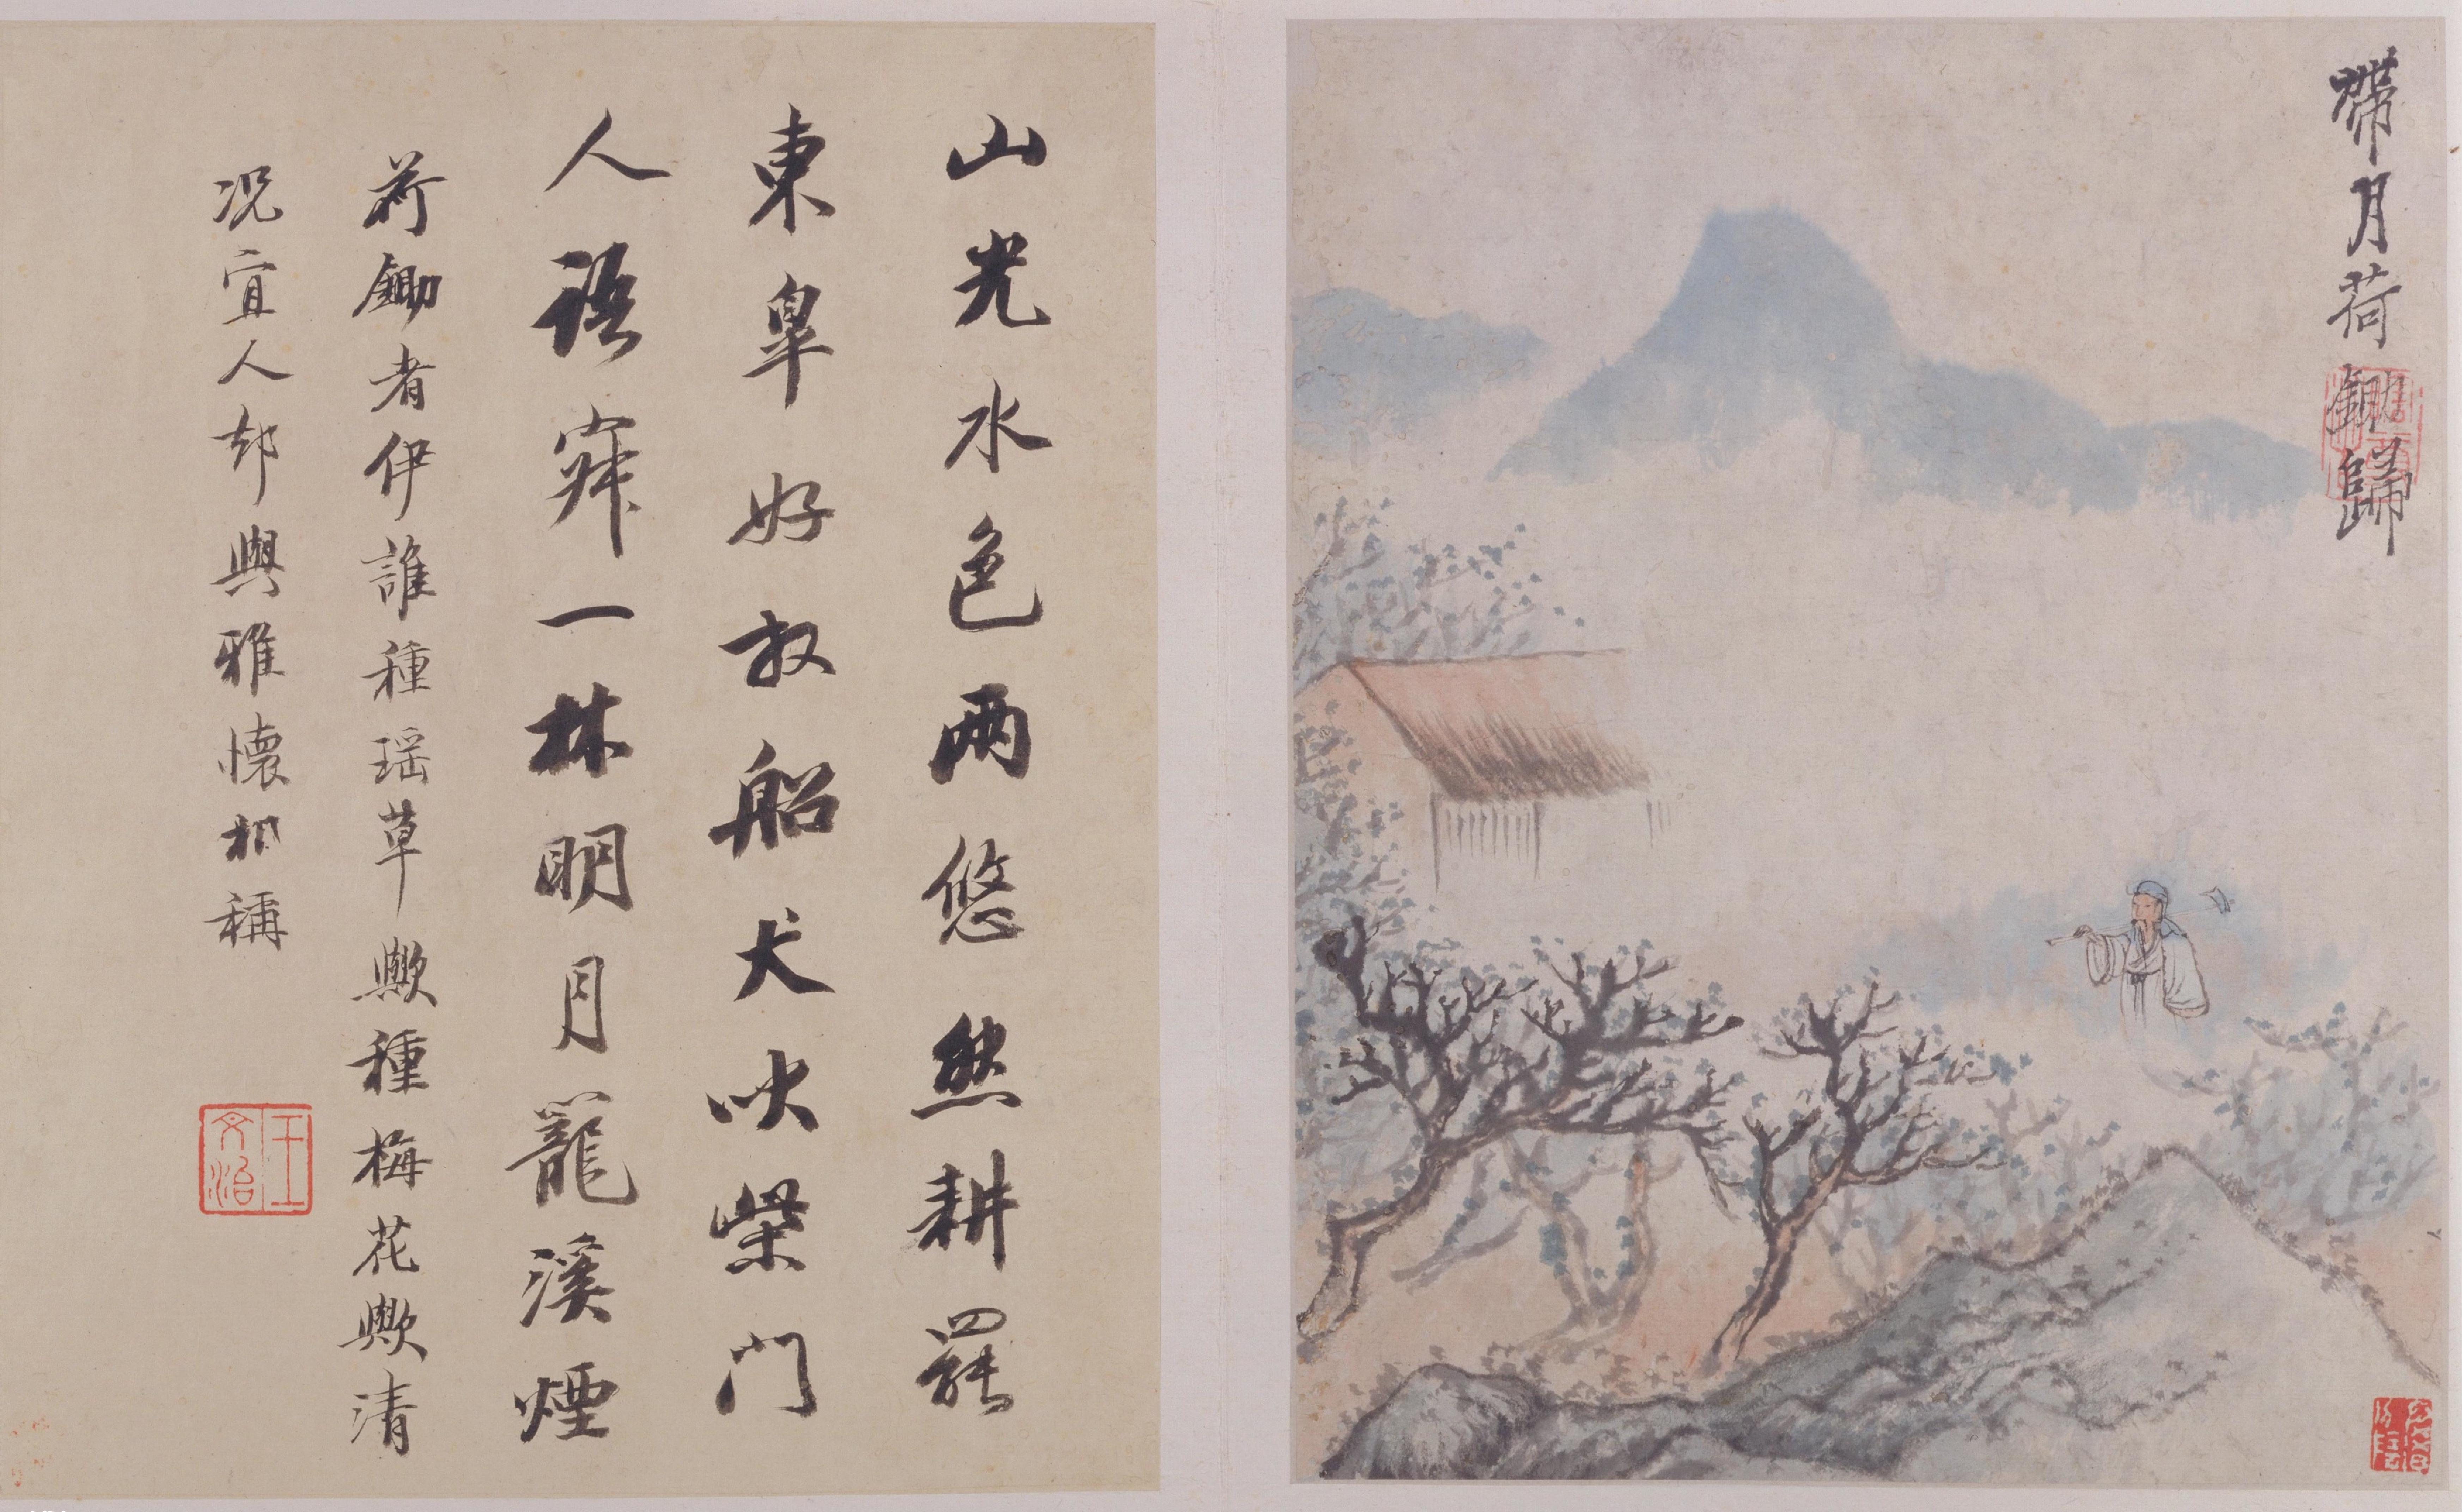 帶月荷鋤歸
山光水色兩悠然耕罷
東皐好放船犬吠柴門
人語寂一林明月籠溪煙
荷鋤者伊誰種瑶草歟種梅花歟清
况宜人却與雅懷相稱
王文治